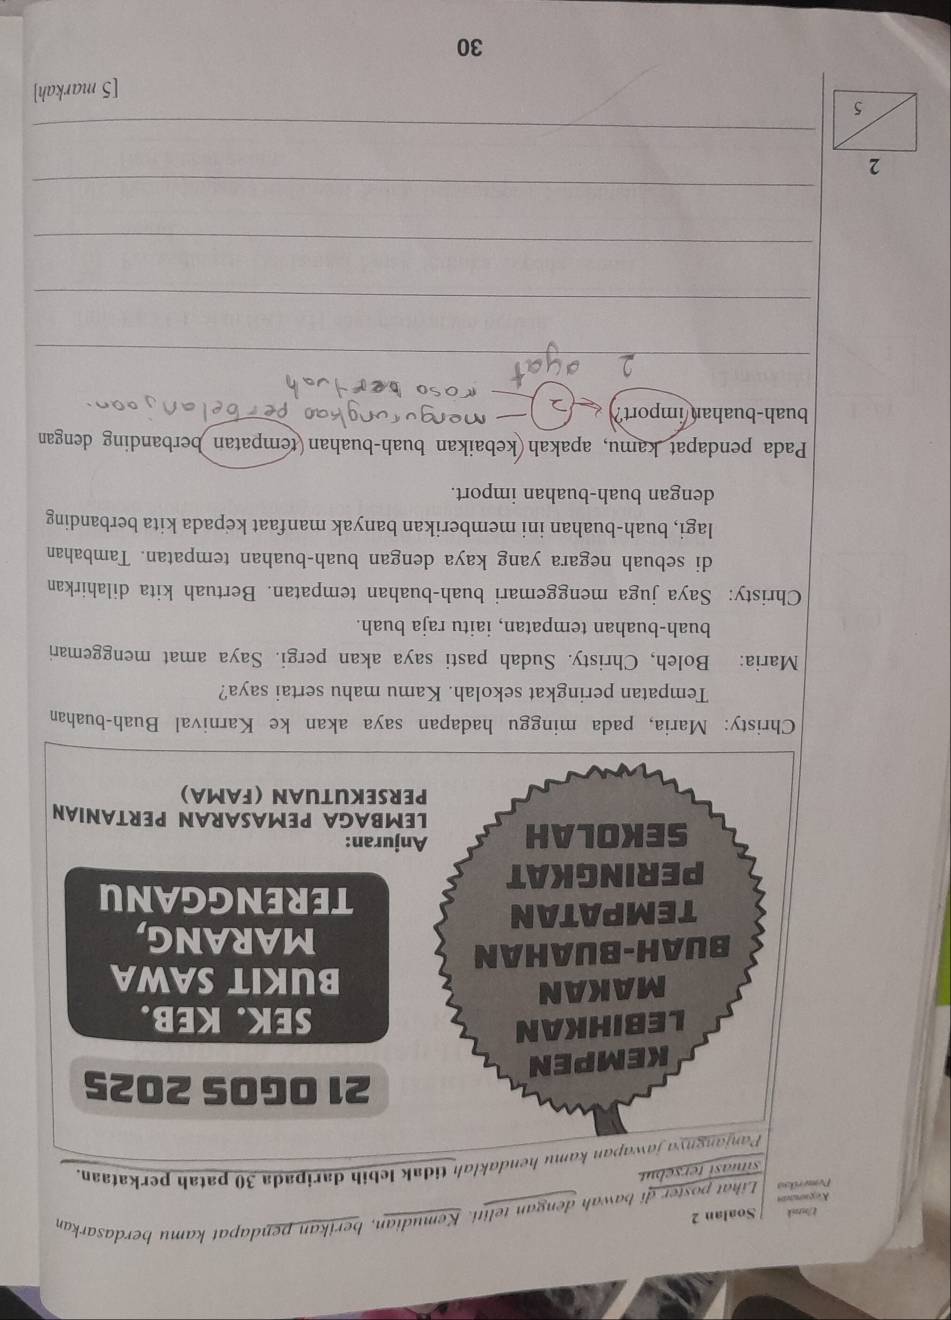 Untuk
Kegunaan
Pemeriksa
Soalan 2
Lihat poster di bawah dengan teliti. Kemudian, berikan pendapat kamu berdasarkan
situasi tersebut.
Panjangnya jawapan kamu hendaklah tidak lebih daripada 30 patah perkataan.
KEMPEN
LEBIHKAN
MAKAN
BUAH-BUAHAN
TEMPATAN
PERINGKAT
SEKOLAH
21 OGOS 2025
SEK. KEB.
BUKIT SAWA
MARANG,
TERENGGANU
Anjuran:
LEMBAGA PEMASARAN PERTANIAN
PERSEKUTUAN (FAMA)
Christy: Maria, pada minggu hadapan saya akan ke Karnival Buah-buahan
Tempatan peringkat sekolah. Kamu mahu sertai saya?
Maria: Boleh, Christy. Sudah pasti saya akan pergi. Saya amat menggemari
buah-buahan tempatan, iaitu raja buah.
Christy: Saya juga menggemari buah-buahan tempatan. Bertuah kita dilahirkan
di sebuah negara yang kaya dengan buah-buahan tempatan. Tambahan
lagi, buah-buahan ini memberikan banyak manfaat kepada kita berbanding
dengan buah-buahan import.
Pada pendapat kamu, apakah kebaikan buah-buahan tempatan berbanding dengan
buah-buahan import? 2 – mengurungkao perbelanjaan.
– rasa bertuah
2 ayat
2
5
[5 markah]
30